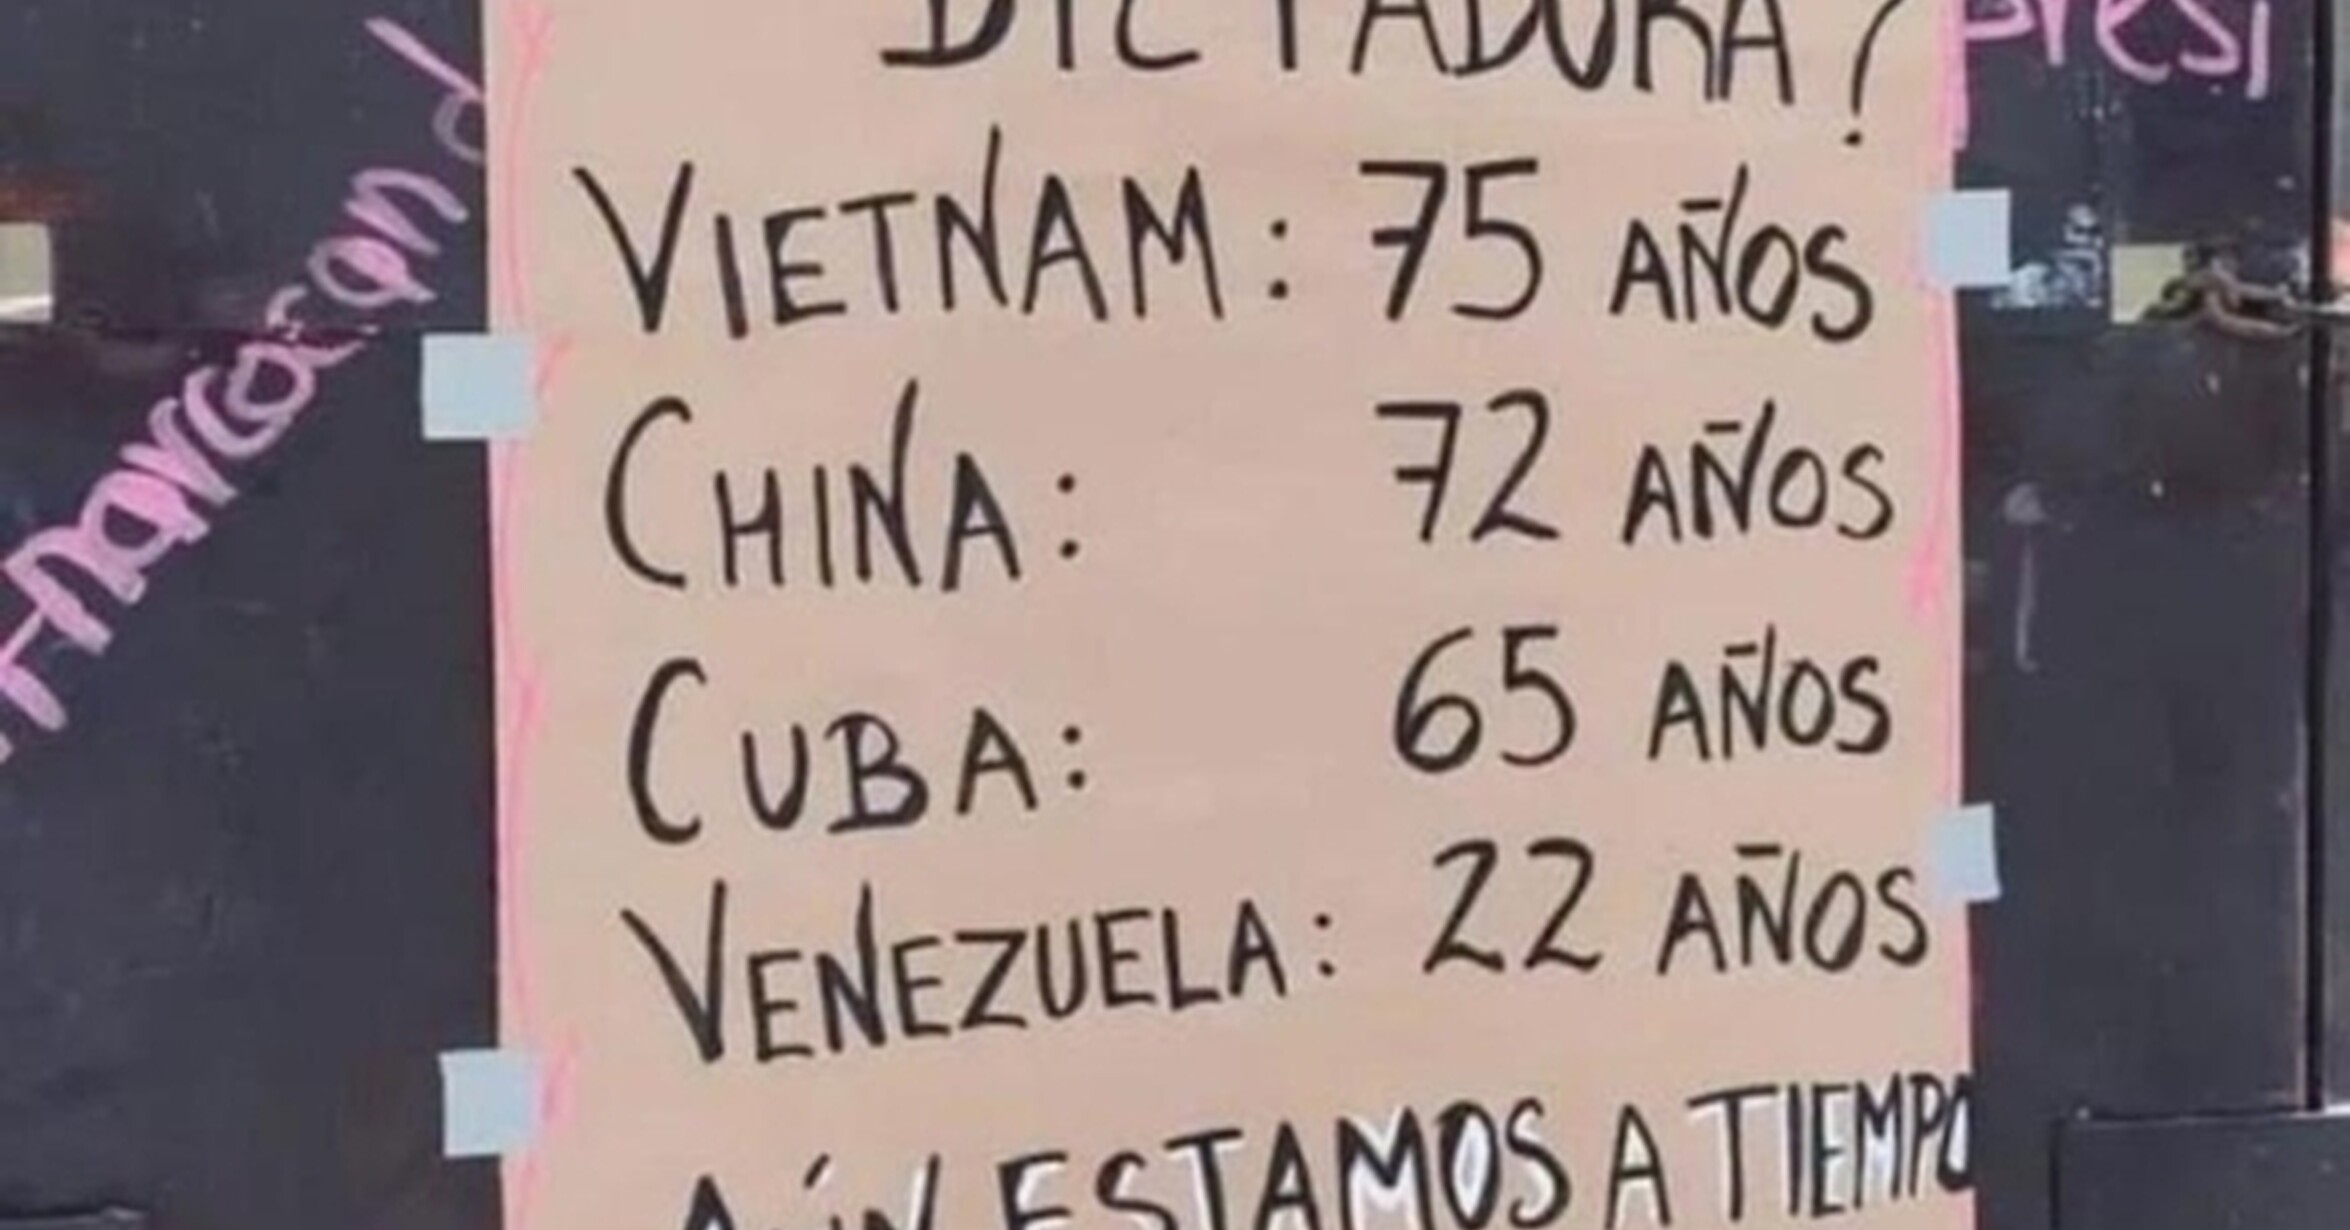 DICTADURA?
VIETNAM: 75 AÑOS
CHINA: 72 AÑOS
CUBA: 65 AÑOS
VENEZUELA: 22 AÑOS
AÚN ESTAMOS A TIEMPO